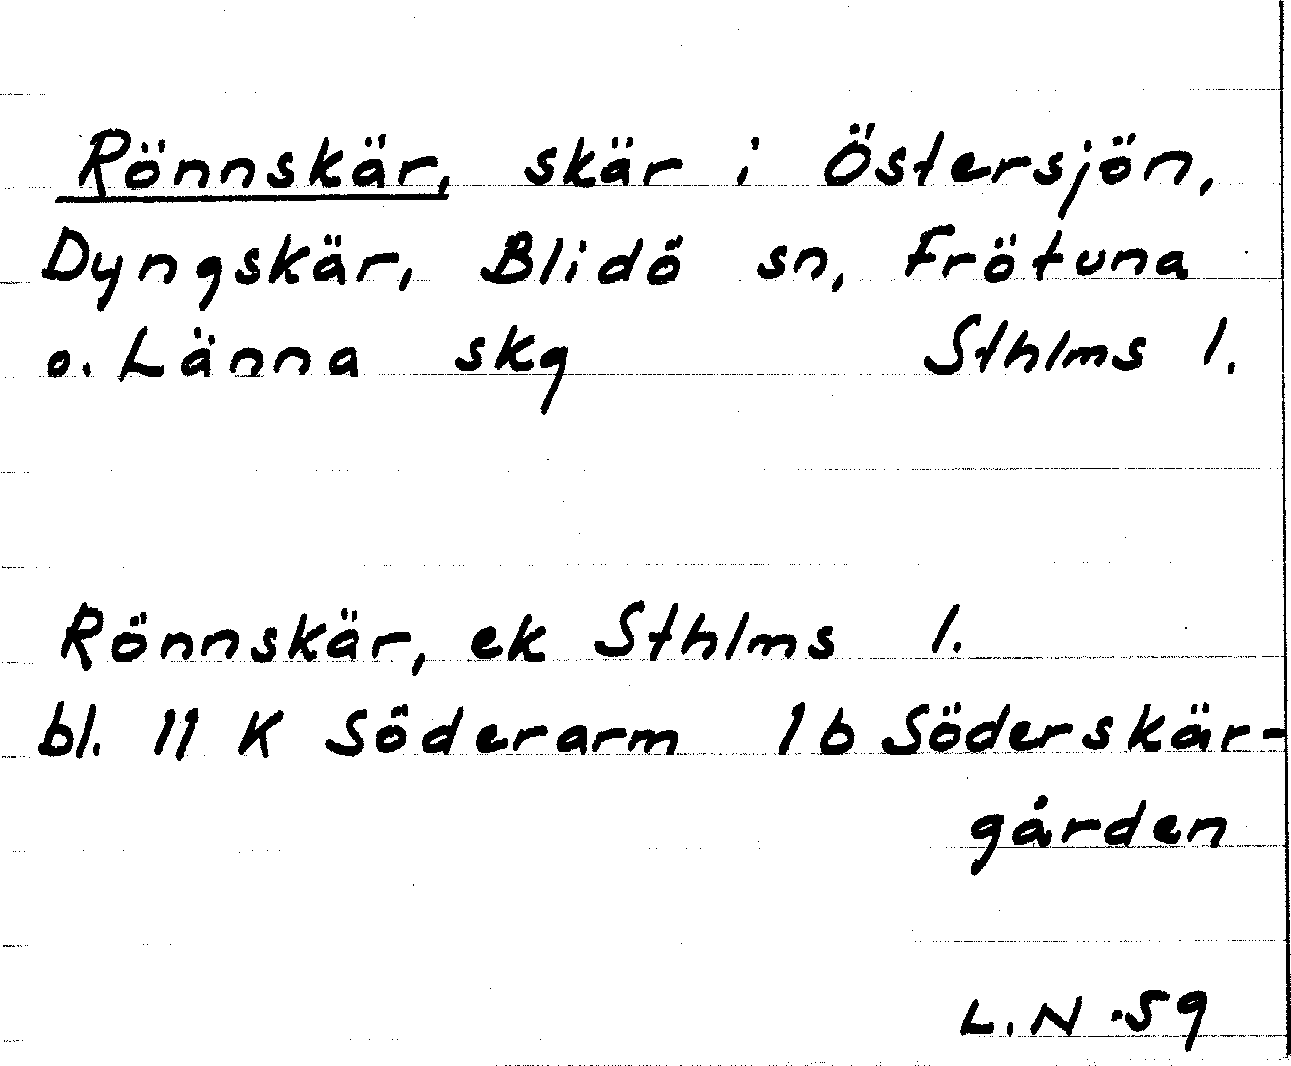 Rönnskär, skär i Östersjön,
Dyngskär, Blidö sn, Frötuna
o. Länna skg Sthlms l.
Rönnskär, ek Sthlms l.
bl. 11 K Söderarm 1b Söderskär-
gården
L.N -59